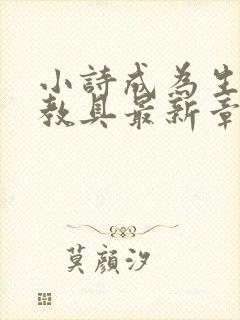 小詩成為生
教具最新章
莫顏汐